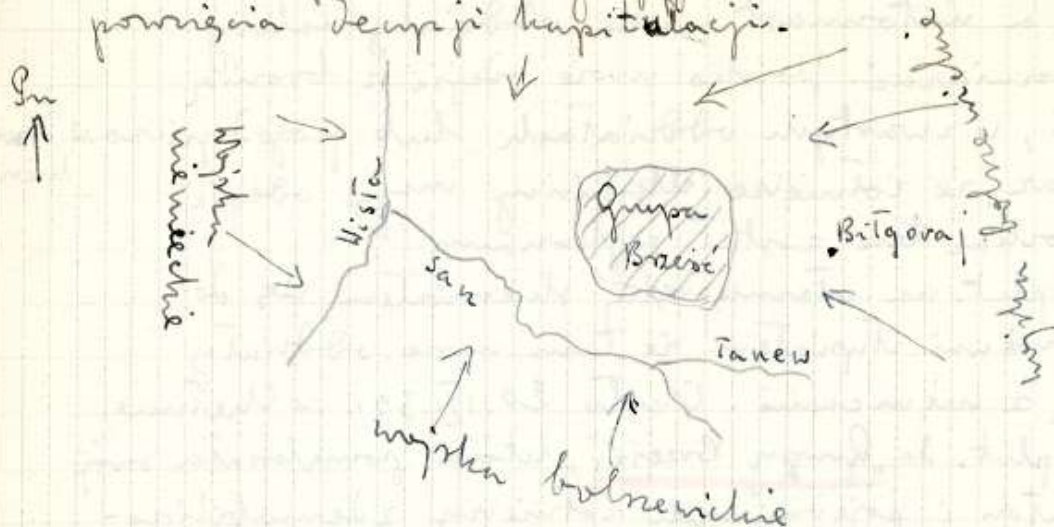 powzięcia decyzji kapitulacji.
Pn
Wojska
niemieckie
Wisła
San
Grupa
Brześć
Biłgoraj
Tanew
wojska bolszewickie